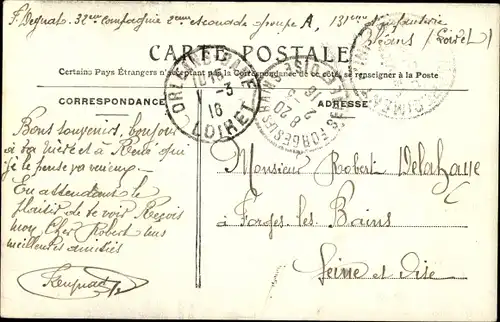 F. Pegnat. 32eme compagnie 2eme escouade groupe A, 131eme Infanterie
Orléans (Loiret)
CARTE POSTALE
Certains Pays Étrangers n'acceptent pas la Correspondance de ce côté, se renseigner à la Poste
CORRESPONDANCE
ADRESSE
-3
16
LOIRET
Bons souvenirs, bonjour
à ta mère et à René qui
je le pense va mieux.
En attendant le
plaisir de te voir Reçois
mon Cher Robert mes
meilleures amitiés
Monsieur Robert Delahaye
à Forges-les-Bains
Seine et Oise